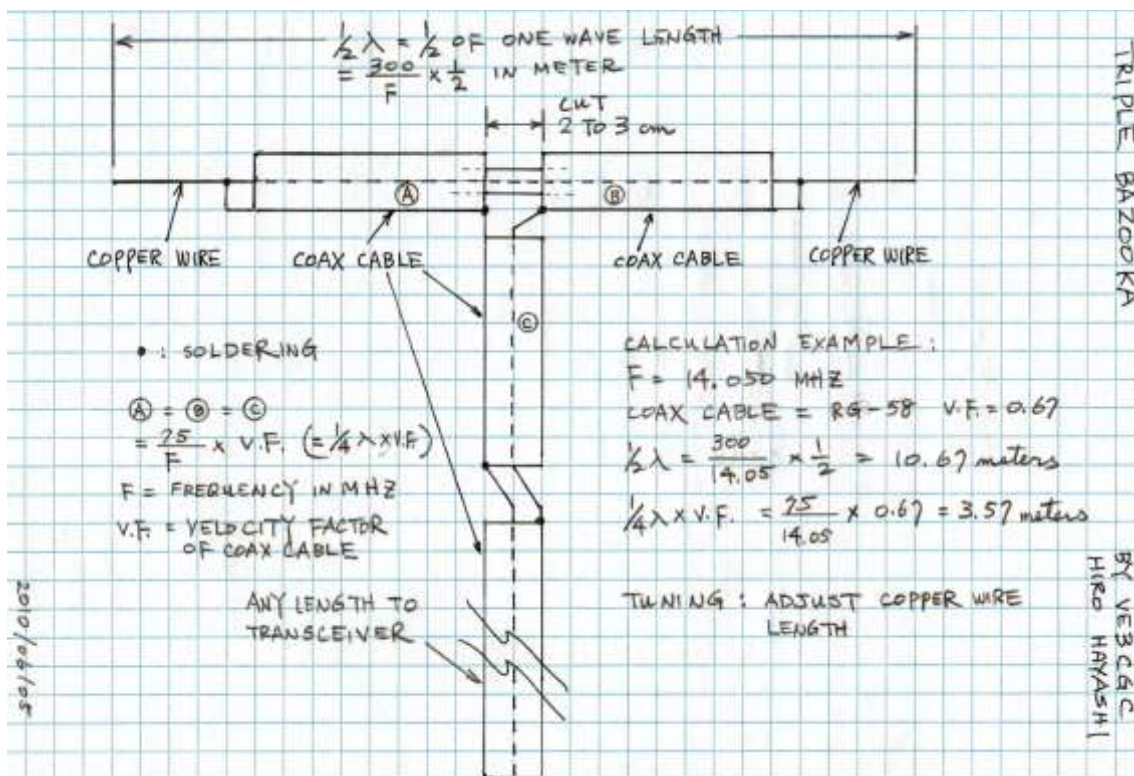 ½ λ = ½ OF ONE WAVE LENGTH
= 300/F × ½ IN METER
CUT
2 TO 3 cm
TRIPLE BAZOOKA
Ⓐ
Ⓑ
COPPER WIRE
COAX CABLE
COAX CABLE
COPPER WIRE
Ⓒ
• : SOLDERING
Ⓐ = Ⓑ = Ⓒ
= 75/F × V.F. (= ¼ λ × V.F.)
F = FREQUENCY IN MHZ
V.F. = VELOCITY FACTOR
OF COAX CABLE
ANY LENGTH TO
TRANSCEIVER
CALCULATION EXAMPLE :
F = 14.050 MHZ
COAX CABLE = RG-58 V.F. = 0.67
½ λ = 300/14.05 × ½ = 10.67 meters
¼ λ × V.F. = 75/14.05 × 0.67 = 3.57 meters
TUNING : ADJUST COPPER WIRE
LENGTH
BY VE3CGC
HIRO HAYASHI
2010/06/05